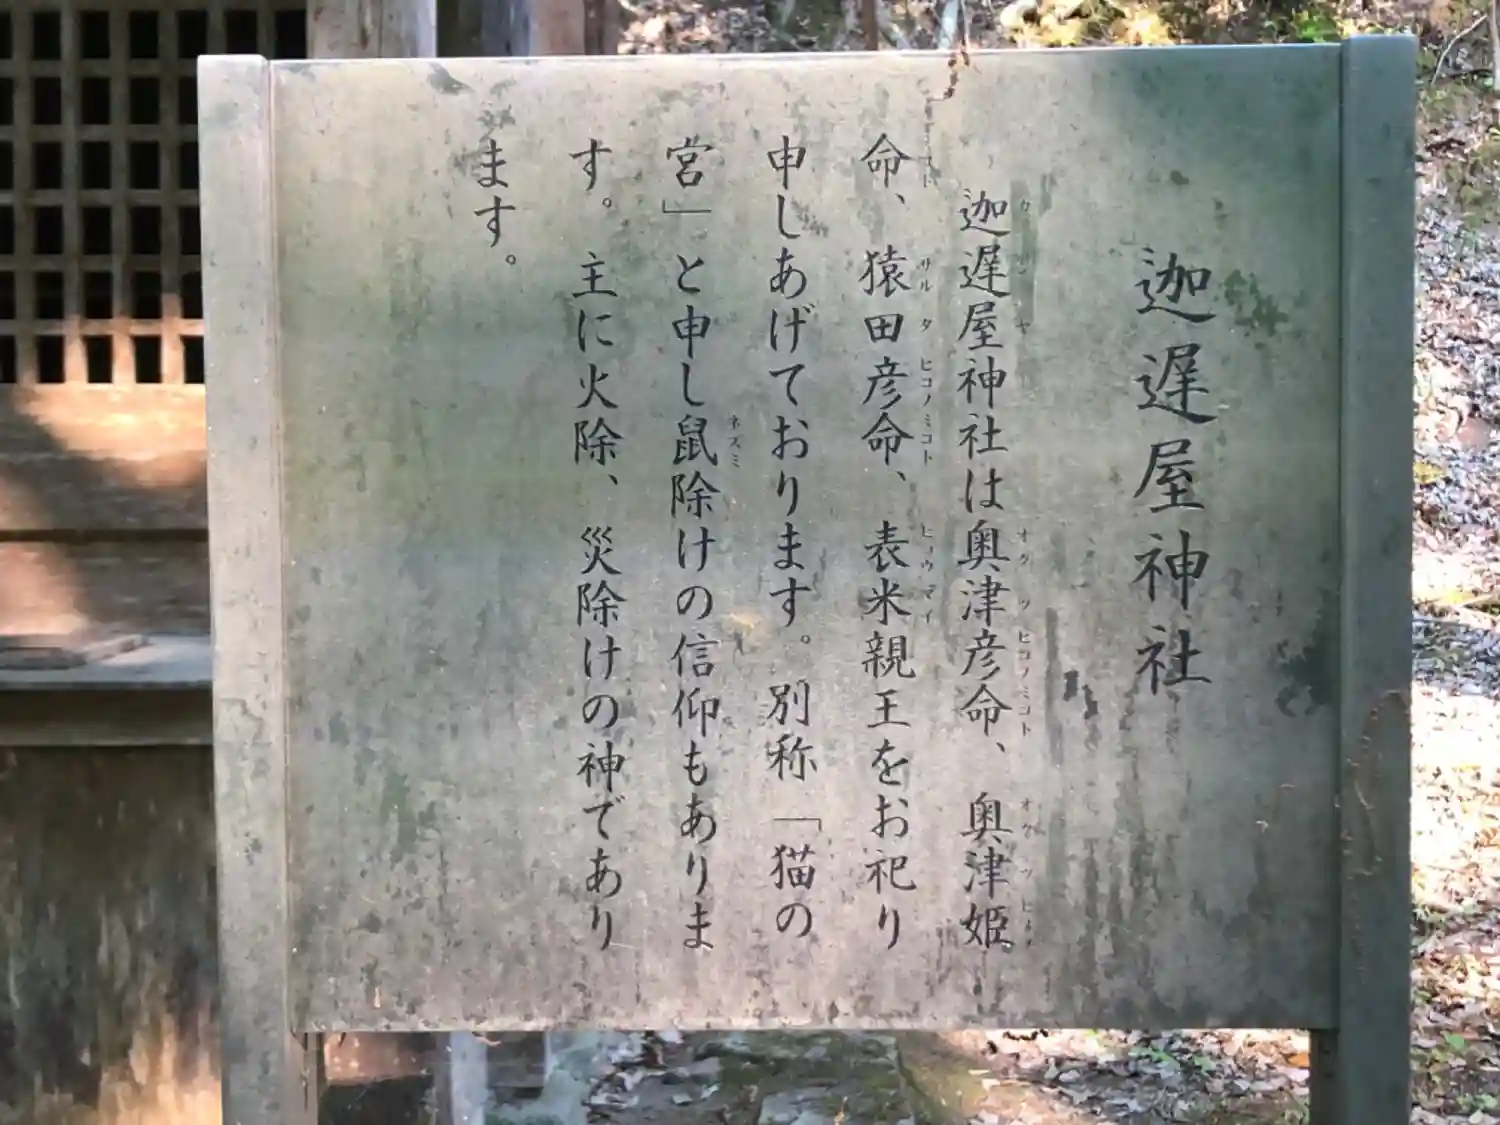 迦遅屋神社
迦遅屋神社は奥津彦命、奥津姫
命、猿田彦命、表米親王をお祀り
申しあげております。別称「猫の
宮」と申し鼠除けの信仰もありま
す。主に火除、災除けの神であり
ます。